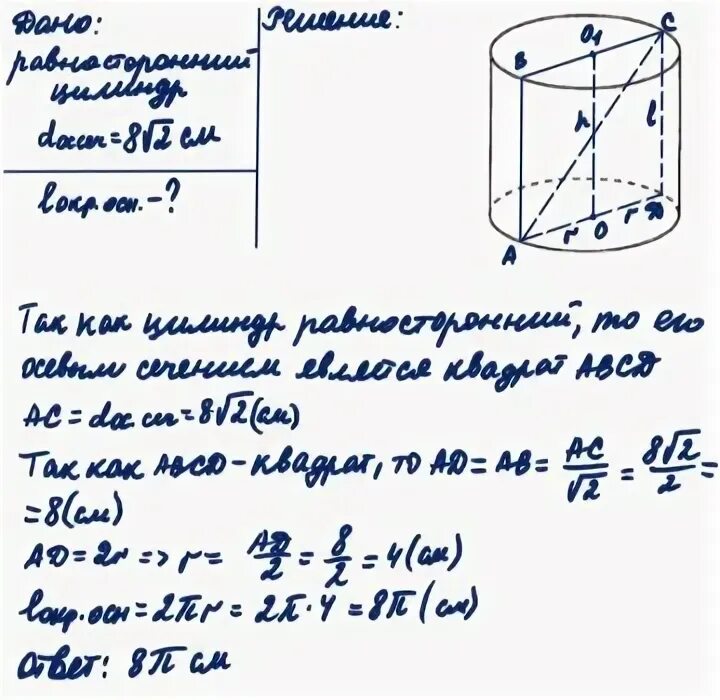 Дано:
равносторонний
цилиндр
dос.сеч = 8√2 см
lокр.осн. - ?
Решение:
C
O1
B
h
l
r
O
r
D
A
Так как цилиндр равносторонний, то его
осевым сечением является квадрат ABCD
AC = dос.сеч = 8√2 (см)
Так как ABCD - квадрат, то AD = AB = AC/√2 = 8√2/2 =
= 8 (см)
AD = 2r => r = AD/2 = 8/2 = 4 (см)
lокр.осн = 2πr = 2π · 4 = 8π (см)
Ответ: 8π см